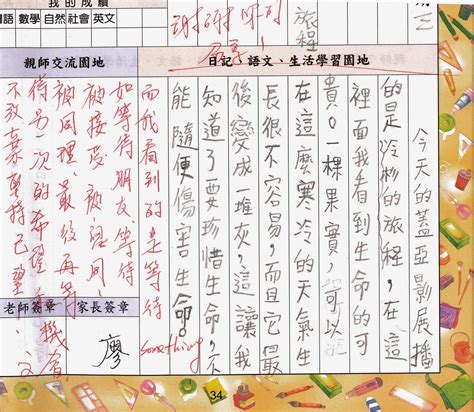 我的成績
語 數學 自然 社會 英文
期三
謝謝你的
分享!
旅程
親師交流園地
日記、語文、生活學習園地
今天的蓋亞影展播
的是冷杉的旅程,在這
裡面我看到生命的可
貴。一棵果實,可以
在這麼寒冷的天氣生
長很不容易,而且它
後變成一堆灰,這讓我
知道了要珍惜生命,不
能隨便傷害生命。
而我看到的是等待
something
如等待朋友、等待
被接受、被認同、
被同理、最後再等
待另一次的希望機會
不放棄堅持己
老師簽章
家長簽章
廖
34